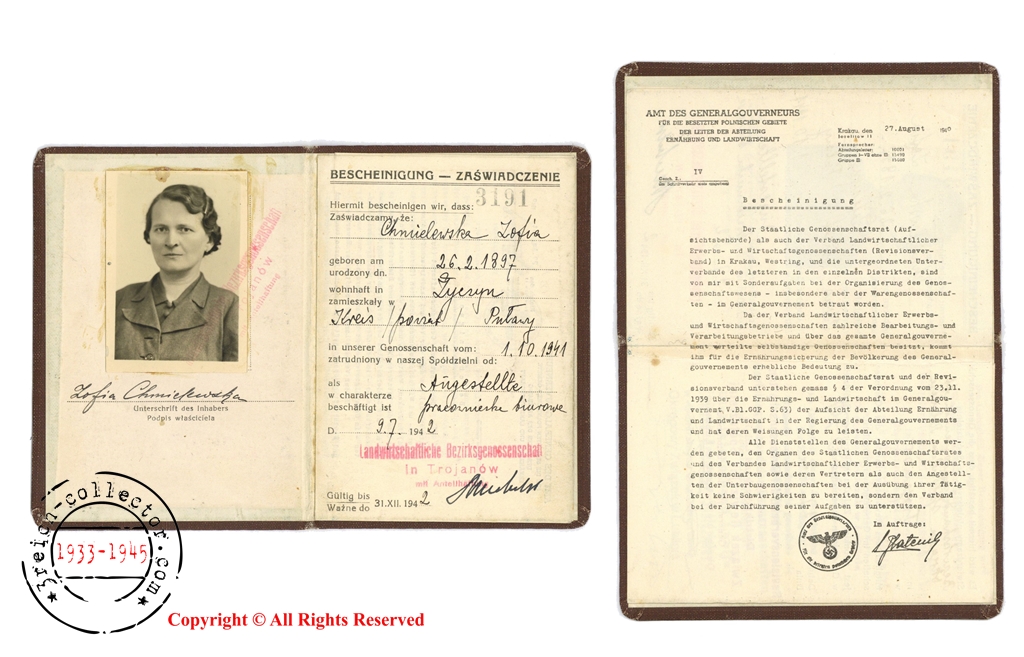 BESCHEINIGUNG — ZAŚWIADCZENIE
3191
Hiermit bescheinigen wir, dass:
Zaświadczamy, że:
Chmielewska Zofia
geboren am
urodzony dn.
26.2.1897
wohnhaft in
zamieszkały w
Życzyn
Kreis /powiat/ Puławy
in unserer Genossenschaft vom:
zatrudniony w naszej Spółdzielni od:
1.10.1941
als
w charakterze
beschäftigt ist
Angestellte
pracownicka biurowe
D. 9.7. 1942
Landwirtschaftliche Bezirksgenossenschaft
in Trojanów
Gültig bis
Ważne do 31.XII. 1942
Zofia Chmielewska
Unterschrift des Inhabers
Podpis właściciela
AMT DES GENERALGOUVERNEURS
FÜR DIE BESETZTEN POLNISCHEN GEBIETE
DER LEITER DER ABTEILUNG
ERNÄHRUNG UND LANDWIRTSCHAFT
Krakau, den 27. August 1940
Fernsprecher
IV
Bescheinigung
Der Staatliche Genossenschaftsrat (Auf-
sichtsbehörde) als auch der Verband Landwirtschaftlicher
Erwerbs- und Wirtschaftsgenossenschaften (Revisionsver-
band) in Krakau, Westring, und die untergeordneten Unter-
verbande des letzteren in den einzelnen Distrikten, sind
von mir mit Sonderaufgaben bei der Organisierung des Genos-
senschaftswesens - insbesondere aber der Warengenossenschaf-
ten - im Generalgouvernement betraut worden.
Da der Verband Landwirtschaftlicher Erwerbs-
und Wirtschaftsgenossenschaften zahlreiche Bearbeitungs- und
Verarbeitungsbetriebe und über das gesamte Generalgouverne-
ment verteilte selbständige Genossenschaften besitzt, kommt
ihm für die Ernährungssicherung der Bevölkerung des General-
gouvernements erhebliche Bedeutung zu.
Der Staatliche Genossenschaftsrat und der Revi-
sionsverband unterstehen gemäss § 4 der Verordnung vom 23.11.
1939 über die Ernährungs- und Landwirtschaft im Generalgou-
vernement, V.Bl.GGP. S.63) der Aufsicht der Abteilung Ernährung
und Landwirtschaft in der Regierung des Generalgouvernements
und hat deren Weisungen Folge zu leisten.
Alle Dienststellen des Generalgouvernements wer-
den gebeten, den Organen des Staatlichen Genossenschaftsrates
und des Verbandes Landwirtschaftlicher Erwerbs- und Wirtschafts-
genossenschaften sowie deren Vertretern als auch den Angestell-
ten der Unterbaugenossenschaften bei der Ausübung ihrer Tätig-
keit keine Schwierigkeiten zu bereiten, sondern den Verband
bei der Durchführung seiner Aufgaben zu unterstützen.
Im Auftrage:
3reich-collector.com
1933-1945
Copyright © All Rights Reserved